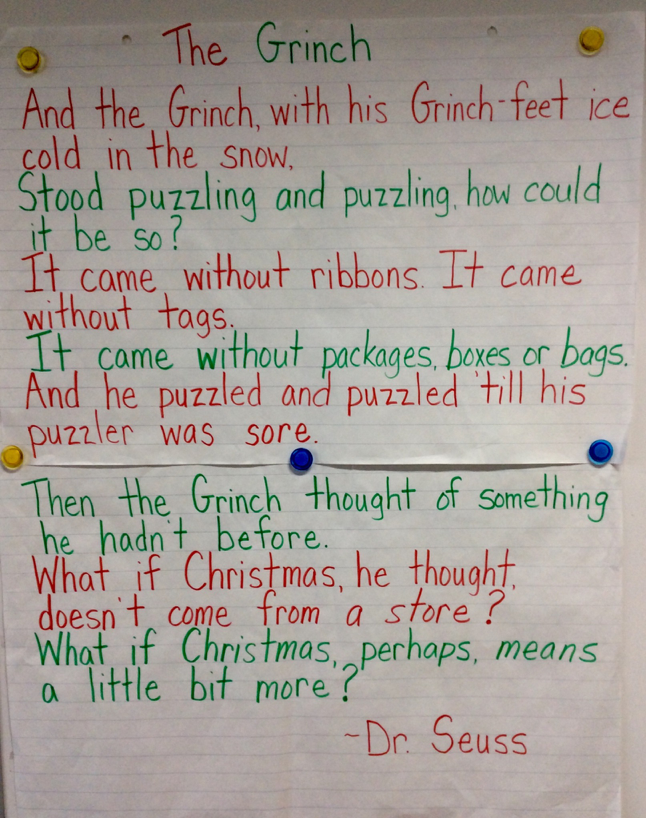 The Grinch
And the Grinch, with his Grinch-feet ice
cold in the snow,
Stood puzzling and puzzling, how could
it be so?
It came without ribbons. It came
without tags.
It came without packages, boxes or bags.
And he puzzled and puzzled 'till his
puzzler was sore.
Then the Grinch thought of something
he hadn't before.
What if Christmas, he thought,
doesn't come from a store?
What if Christmas, perhaps, means
a little bit more?
~Dr. Seuss